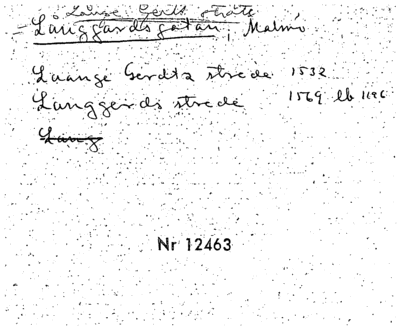 Långe Gerts stræte
– Långgårdsgatan, Malmö
Laange Gerdtz strede 1532
Langgerds strede 1569 lb 1196
Lang
Nr 12463